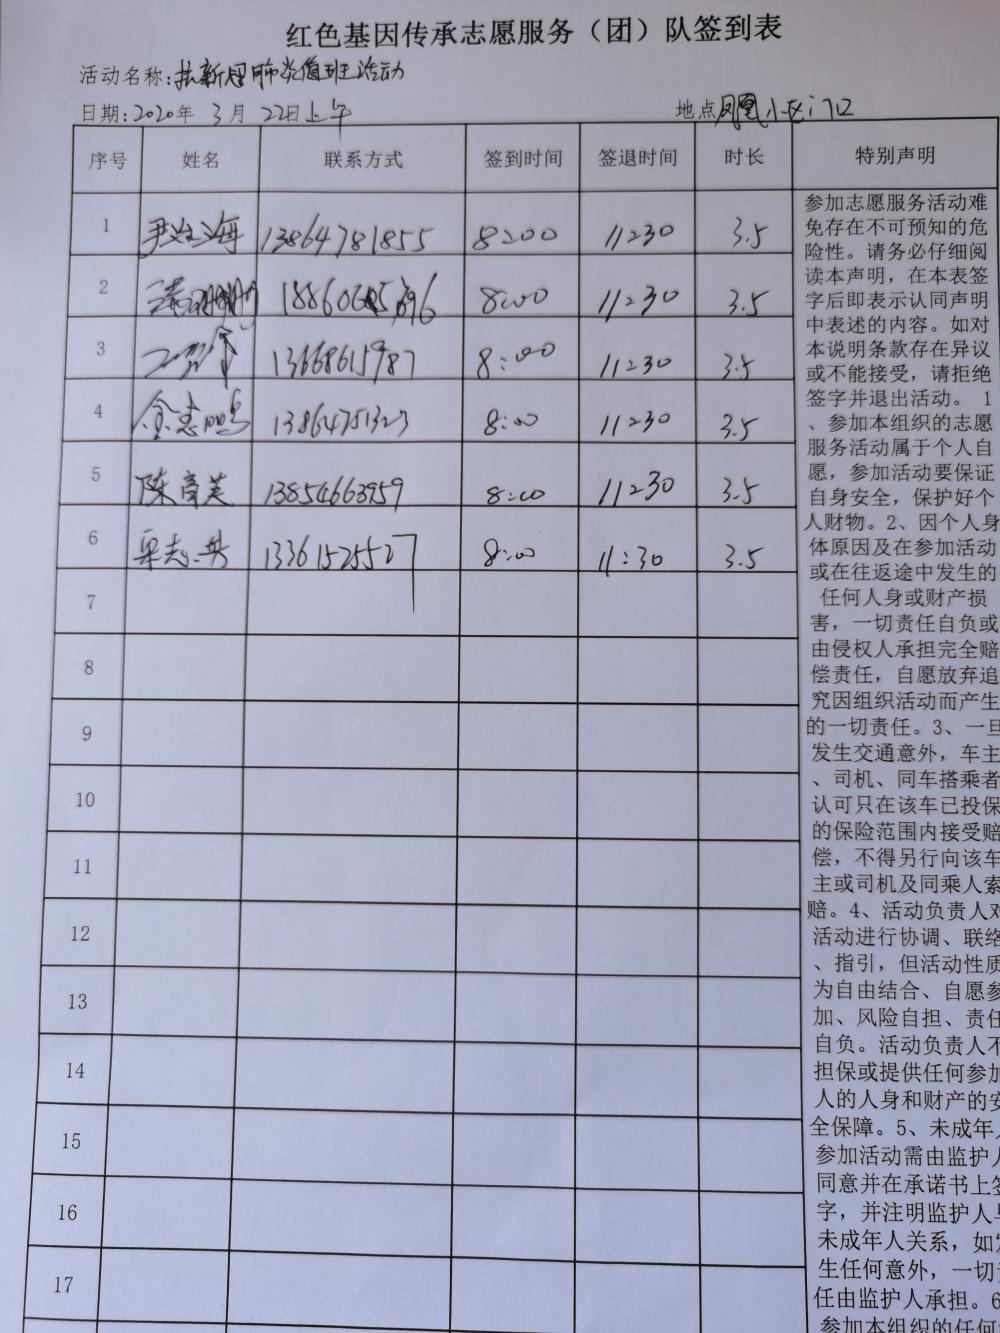 红色基因传承志愿服务（团）队签到表
活动名称:抗新冠肺炎值班活动
日期:2020年 3月 22日上午 地点凤凰小区门口
序号 姓名 联系方式 签到时间 签退时间 时长 特别声明
1 13864781855 8:00 11:30 3.5
2 8:00 11:30 3.5
3 8:00 11:30 3.5
4 金志鸣 13864751327 8:00 11:30 3.5
5 陈育芙 13854668959 8:00 11:30 3.5
6 13361525527 8:00 11:30 3.5
7
8
9
10
11
12
13
14
15
16
17
参加志愿服务活动难
免存在不可预知的危
险性。请务必仔细阅
读本声明，在本表签
字后即表示认同声明
中表述的内容。如对
本说明条款存在异议
或不能接受，请拒绝
签字并退出活动。 1
、参加本组织的志愿
服务活动属于个人自
愿，参加活动要保证
自身安全，保护好个
人财物。2、因个人身
体原因及在参加活动
或在往返途中发生的
任何人身或财产损
害，一切责任自负或
由侵权人承担完全赔
偿责任，自愿放弃追
究因组织活动而产生
的一切责任。3、一旦
发生交通意外，车主
、司机、同车搭乘者
认可只在该车已投保
的保险范围内接受赔
偿，不得另行向该车
主或司机及同乘人索
赔。4、活动负责人对
活动进行协调、联络
、指引，但活动性质
为自由结合、自愿参
加、风险自担、责任
自负。活动负责人不
担保或提供任何参加
人的人身和财产的安
全保障。5、未成年人
参加活动需由监护人
同意并在承诺书上签
字，并注明监护人与
未成年人关系，如发
生任何意外，一切责
任由监护人承担。6
参加本组织的任何